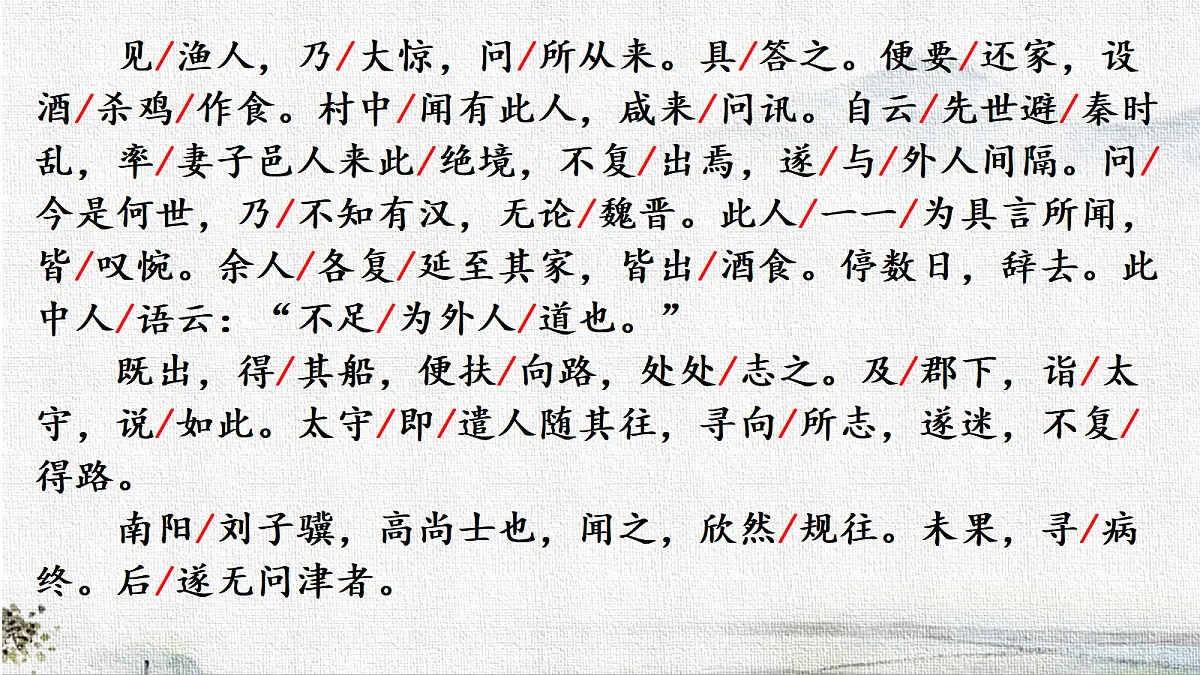 见/渔人，乃/大惊，问/所从来。具/答之。便要/还家，设
酒/杀鸡/作食。村中/闻有此人，咸来/问讯。自云/先世避/秦时
乱，率/妻子邑人来此/绝境，不复/出焉，遂/与/外人间隔。问/
今是何世，乃/不知有汉，无论/魏晋。此人/一一/为具言所闻，
皆/叹惋。余人/各复/延至其家，皆出/酒食。停数日，辞去。此
中人/语云：“不足/为外人/道也。”
既出，得/其船，便扶/向路，处处/志之。及/郡下，诣/太
守，说/如此。太守/即/遣人随其往，寻向/所志，遂迷，不复/
得路。
南阳/刘子骥，高尚士也，闻之，欣然/规往。未果，寻/病
终。后/遂无问津者。